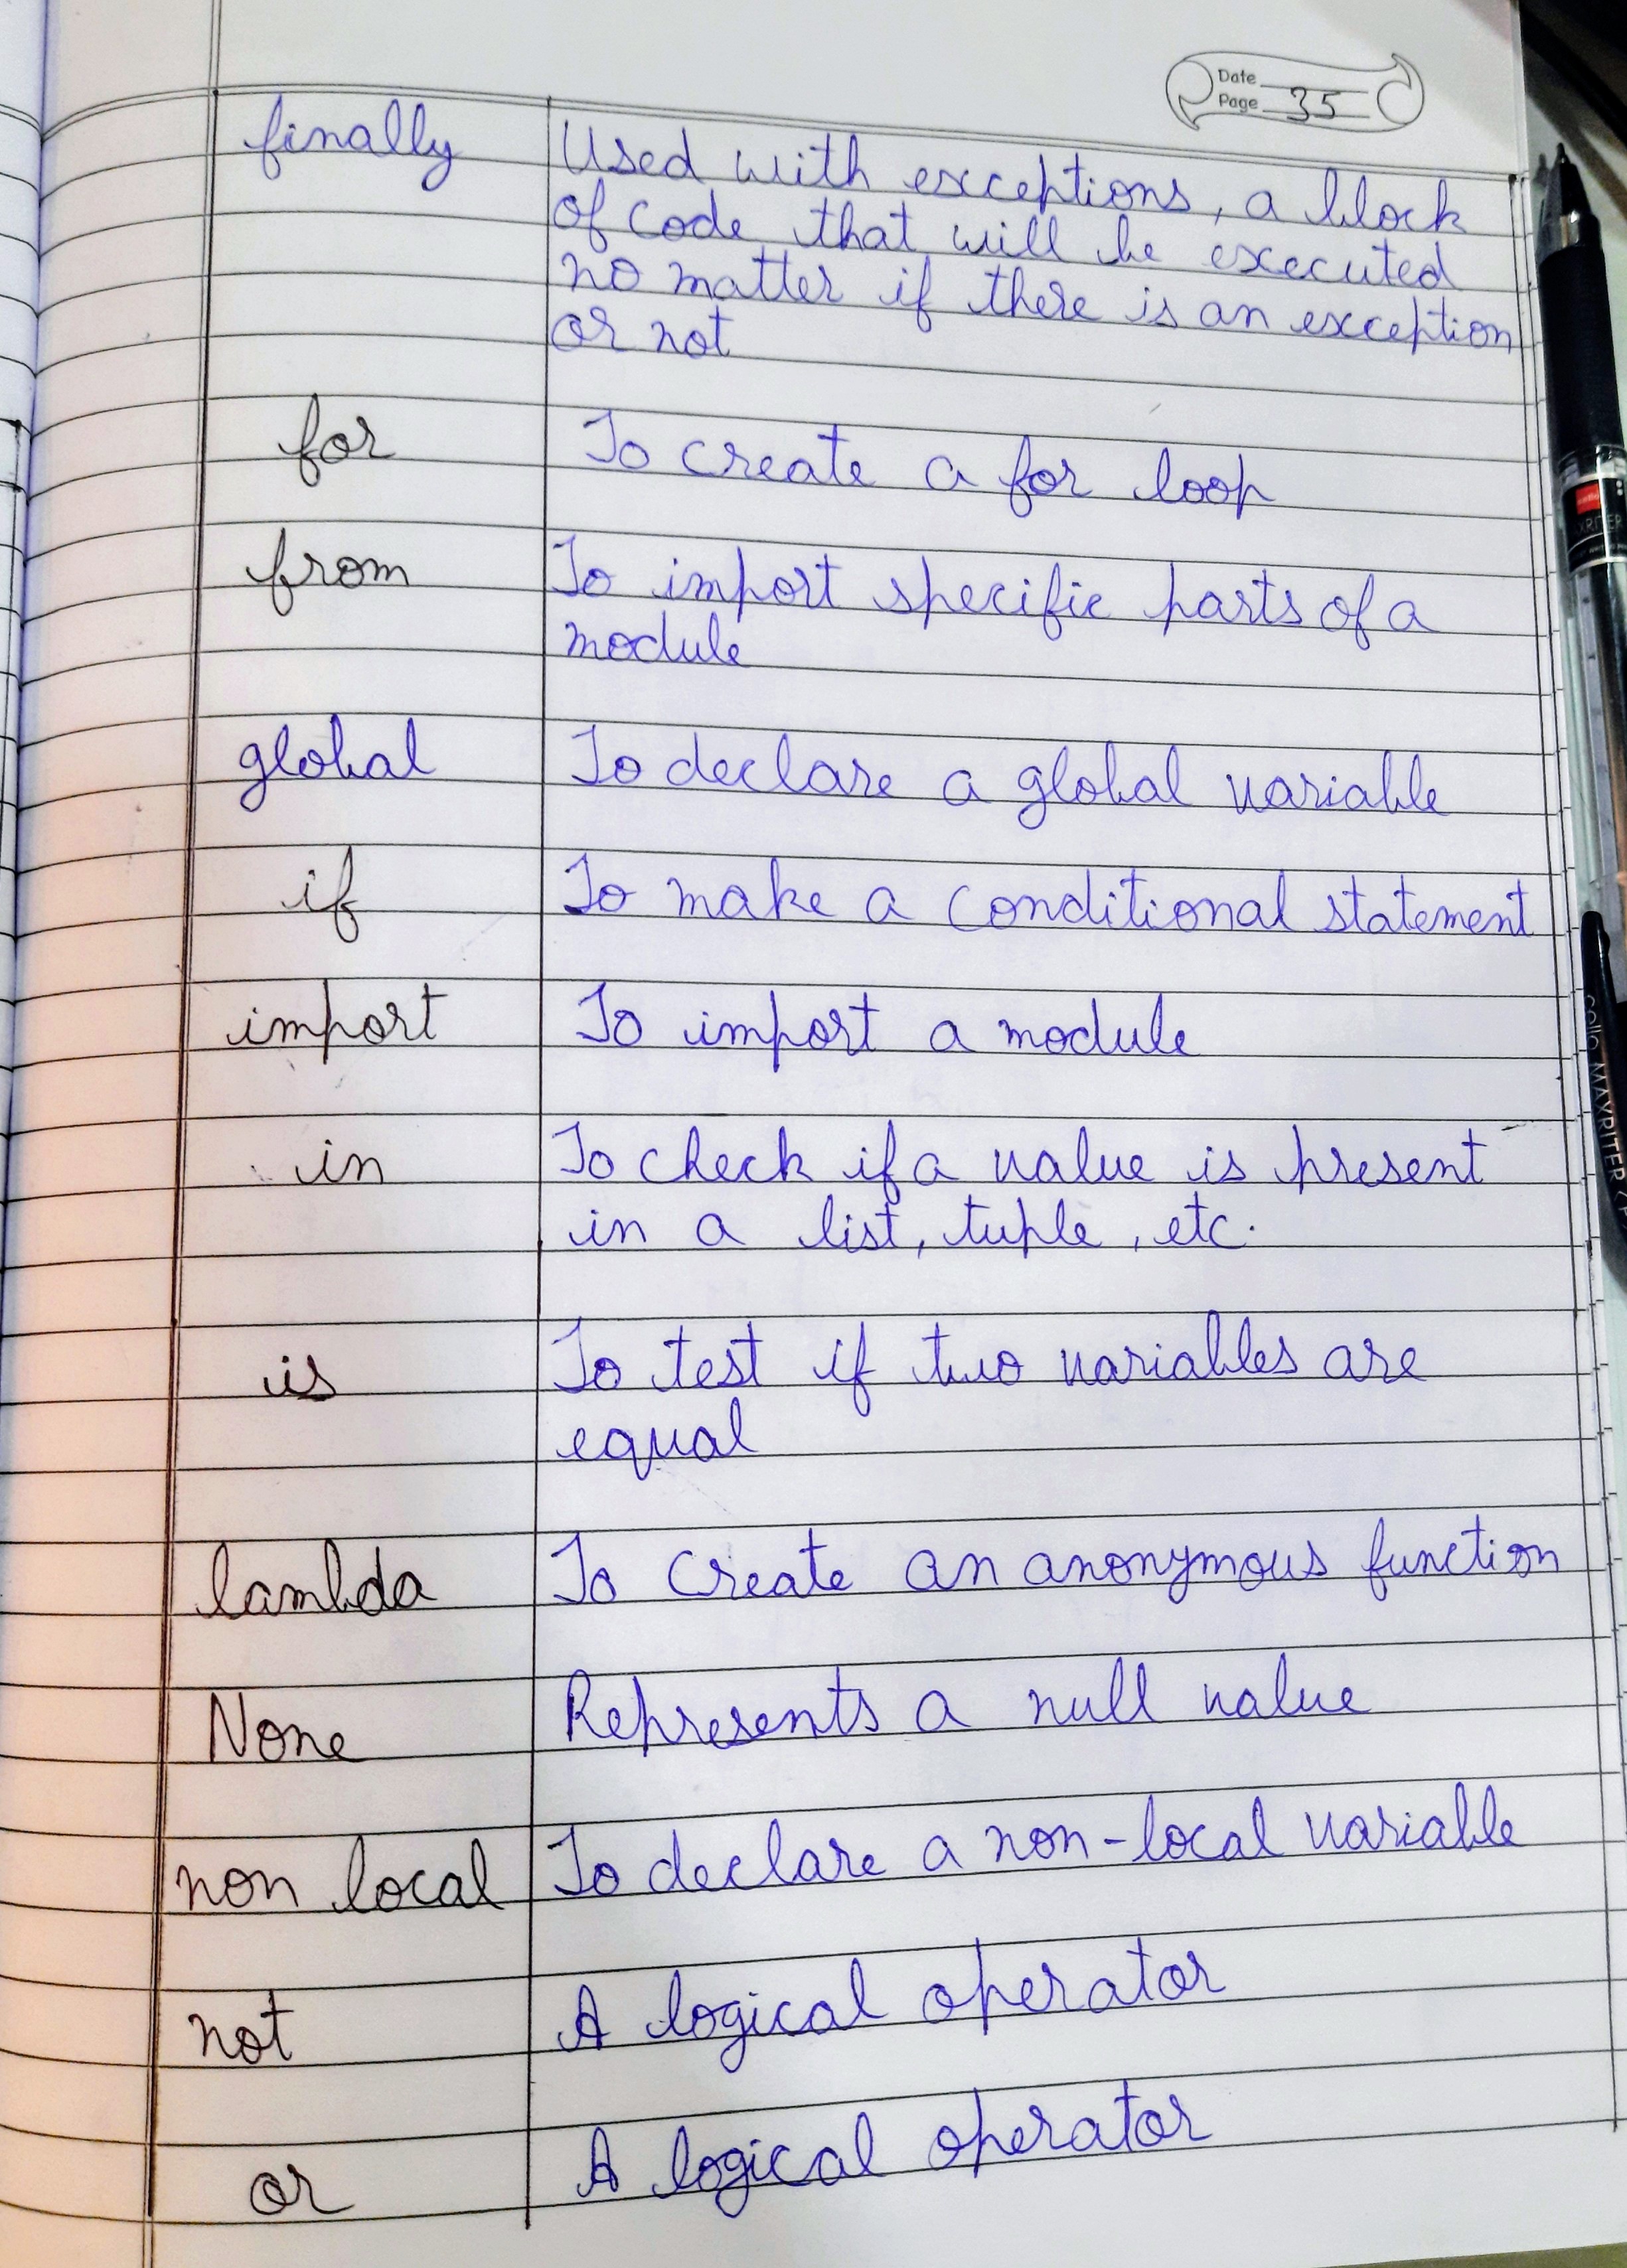 Date
Page 35
finally Used with exceptions, a block
of code that will be executed
no matter if there is an exception
or not
for To create a for loop
from To import specific parts of a
module
global To declare a global variable
if To make a conditional statement
import To import a module
in To check if a value is present
in a list, tuple, etc.
is To test if two variables are
equal
lambda To create an anonymous function
None Represents a null value
non local To declare a non-local variable
not A logical operator
or A logical operator
cello MAXRITER